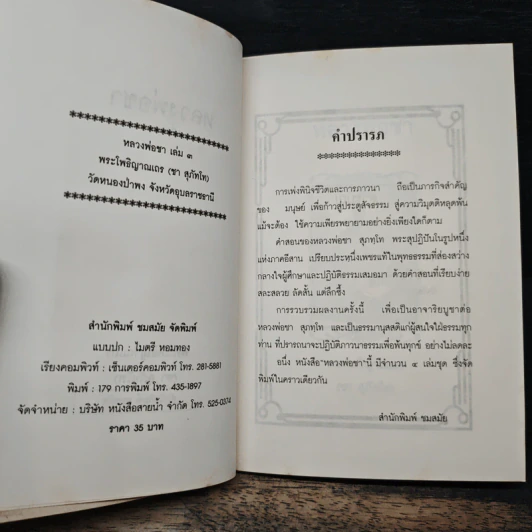 หลวงพ่อชา เล่ม ๓
พระโพธิญาณเถร (ชา สุภัทโท)
วัดหนองป่าพง จังหวัดอุบลราชธานี
สำนักพิมพ์ ชมสมัย จัดพิมพ์
แบบปก : ไมตรี หอมทอง
เรียงคอมพิวท์ : เซ็นเตอร์คอมพิวท์ โทร. 281-5881
พิมพ์ : 179 การพิมพ์ โทร. 435-1897
จัดจำหน่าย : บริษัท หนังสือสายน้ำ จำกัด โทร. 525-0374
ราคา 35 บาท
คำปรารภ
การเพ่งพินิจชีวิตและการภาวนา ถือเป็นภารกิจสำคัญ
ของ มนุษย์ เพื่อก้าวสู่ประตูสัจธรรม สู่ความวิมุตติหลุดพ้น
แม้จะต้อง ใช้ความเพียรพยายามอย่างยิ่งเพียงใดก็ตาม
คำสอนของหลวงพ่อชา สุภทฺโท พระสุปฏิปันโนรูปหนึ่ง
แห่งภาคอีสาน เปรียบประหนึ่งเพชรแท้ในพุทธธรรมที่ส่องสว่าง
กลางใจผู้ศึกษาและปฏิบัติธรรมเสมอมา ด้วยคำสอนที่เรียบง่าย
สละสลวย ลัดสั้น แต่ลึกซึ้ง
การรวบรวมผลงานครั้งนี้ เพื่อเป็นอาจาริยบูชาต่อ
หลวงพ่อชา สุภทฺโท และเป็นธรรมานุสสติแก่ผู้สนใจใฝ่ธรรมทุก
ท่าน ที่ปรารถนาจะปฏิบัติภาวนาธรรมเพื่อพ้นทุกข์ อย่างไม่ลดละ
อนึ่ง หนังสือ"หลวงพ่อชา"นี้ มีจำนวน ๔ เล่มชุด ซึ่งจัด
พิมพ์ในคราวเดียวกัน
สำนักพิมพ์ ชมสมัย